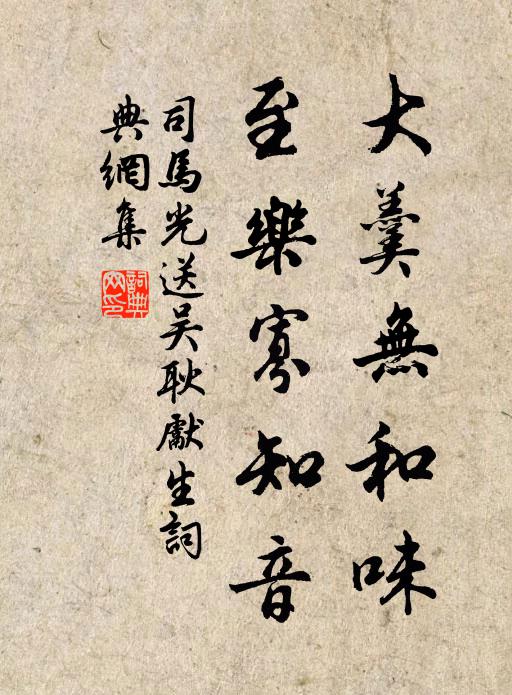 大羹無和味
至樂寡知音
司馬光送吴耿獻生詞
典網集
詞典
网印